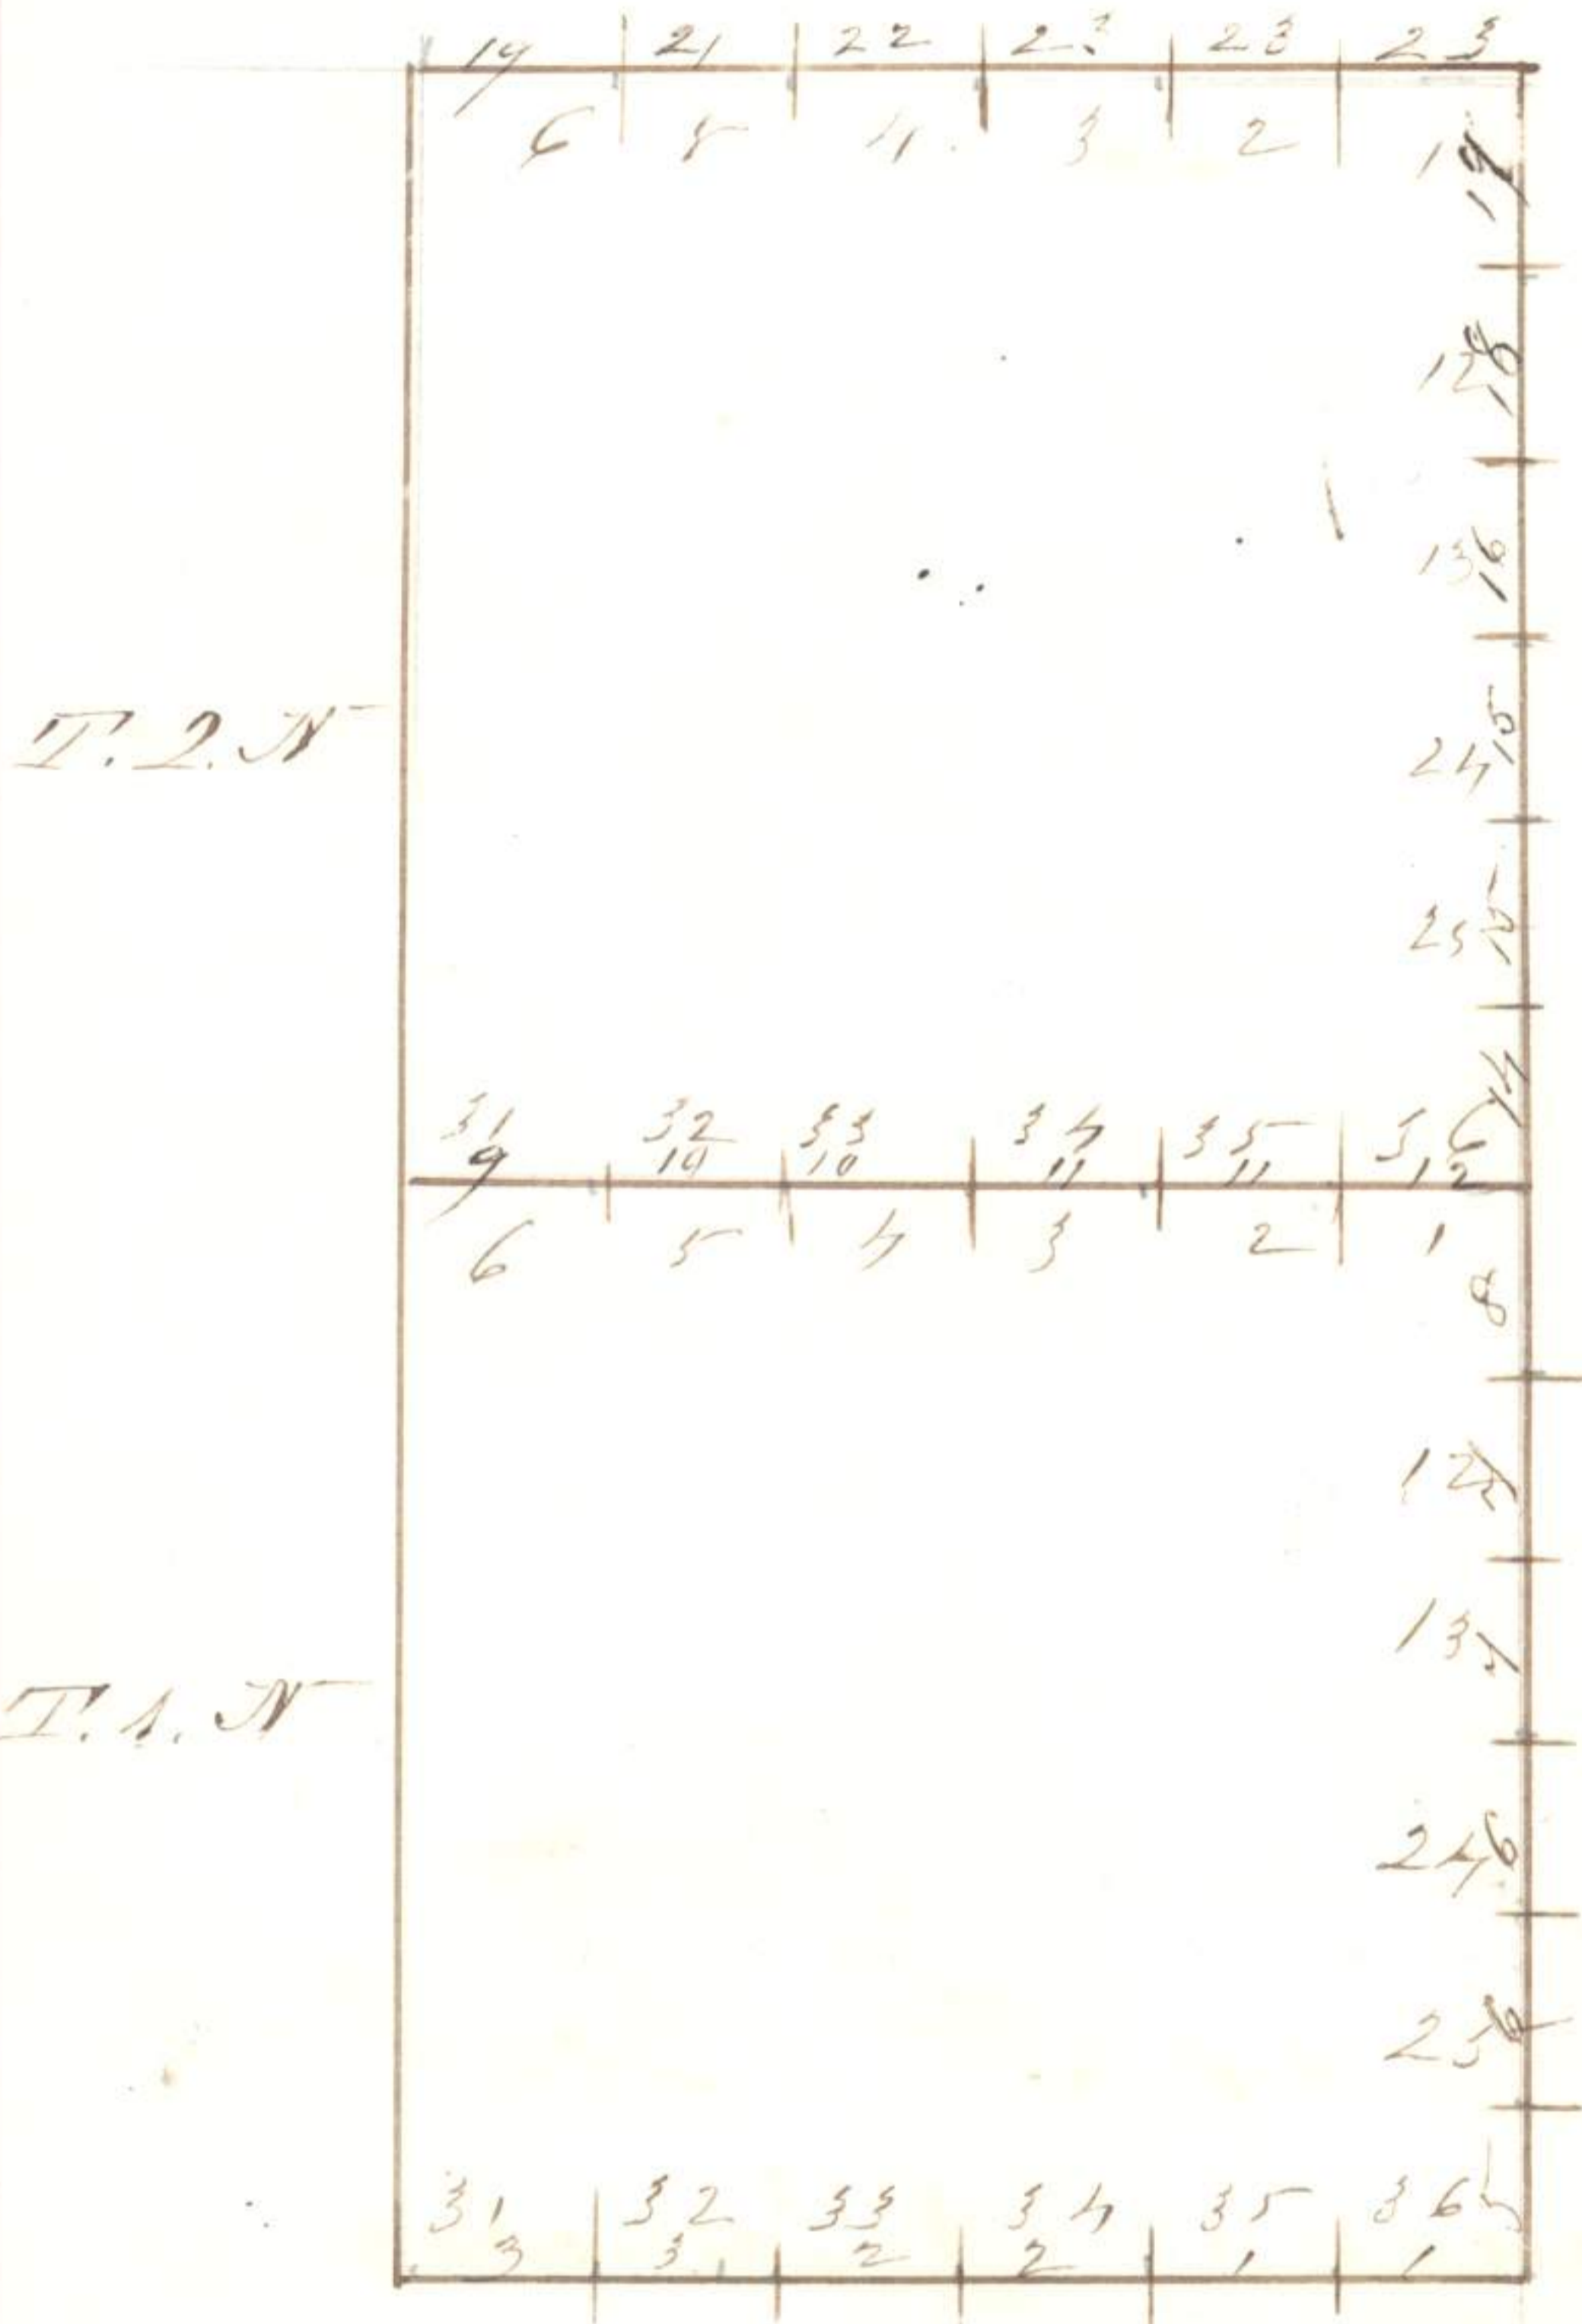 19 21 22 23 23 23
6 5 4 3 2 1
17
12 16
13 16
T. 2. N
24 15
25
14
31 32 33 34 35 36
9 10 10 11 11 12
6 5 4 3 2 1
8
12 7
13 7
T. 1. N
24 6
25 6
31 32 33 34 35 36 5
3 3 2 2 1 1